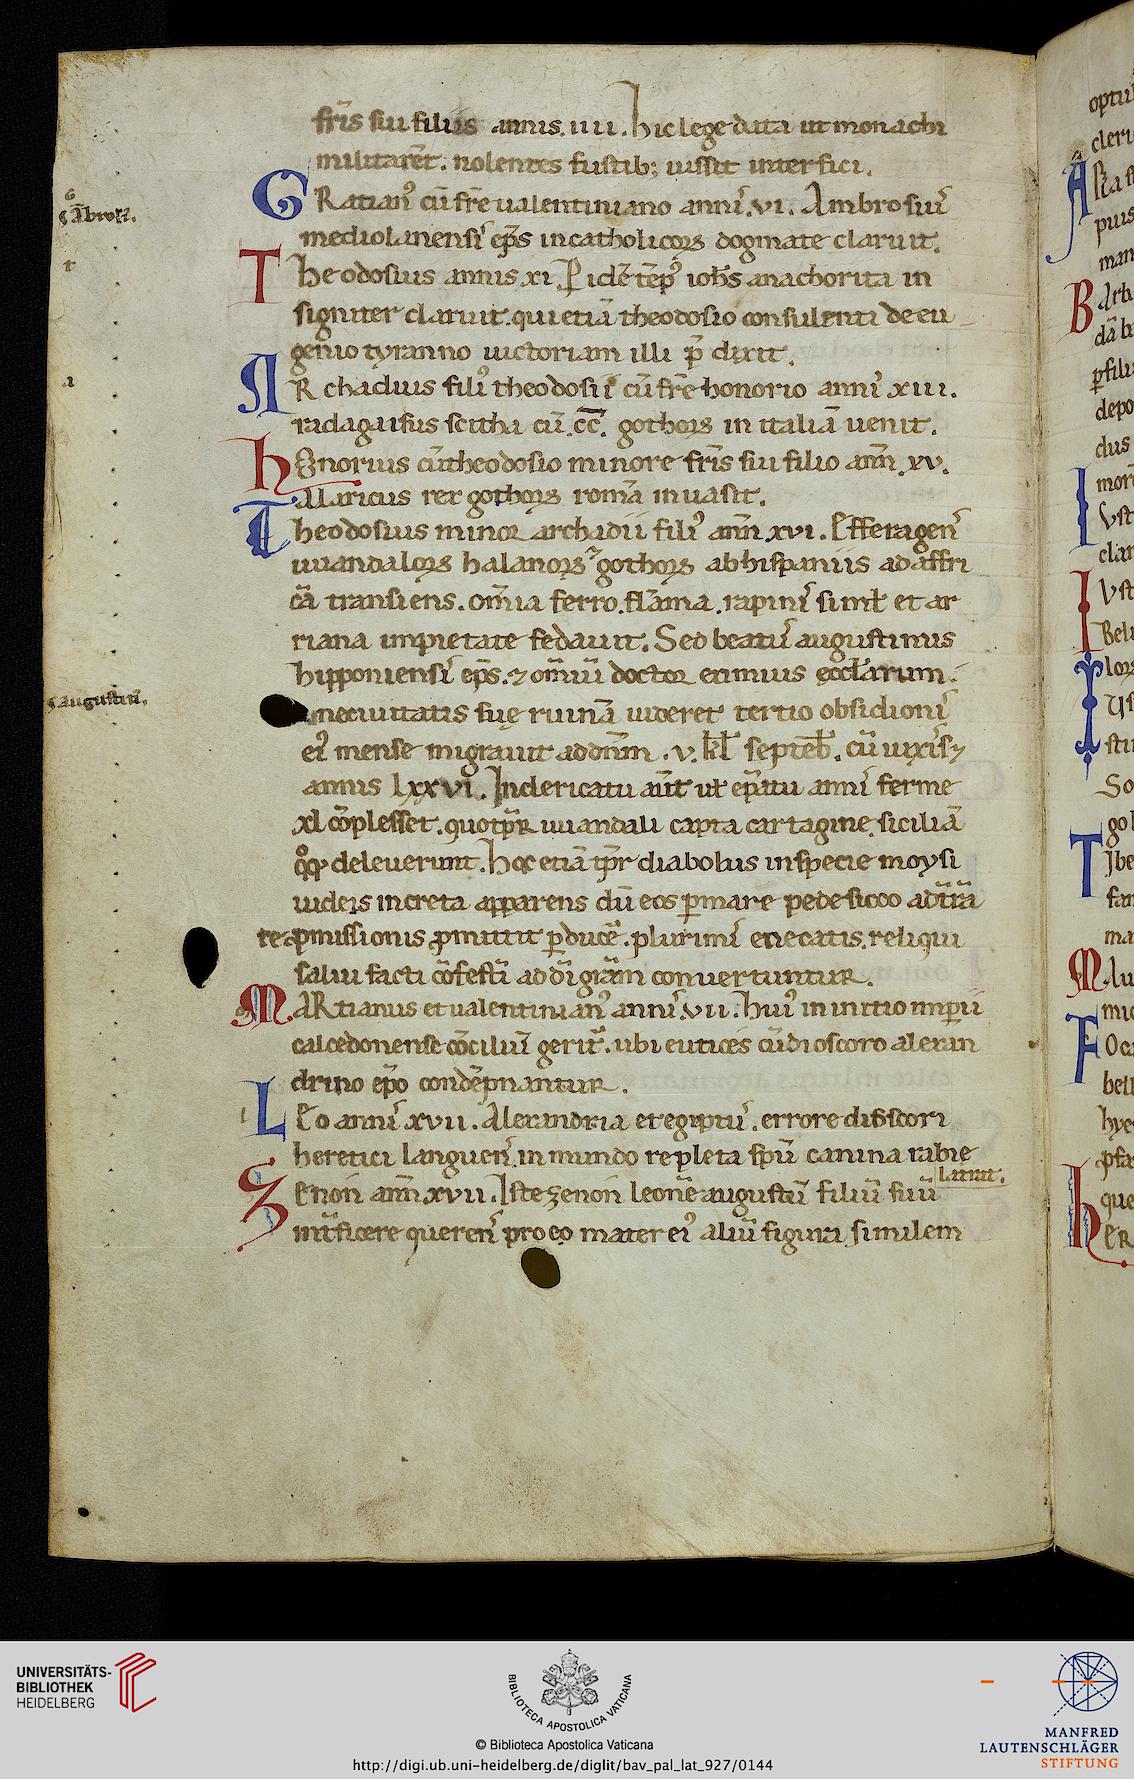 fr̄is sui filiis annis. iiii. Hic lege data ut monachi
militarēt. nolentes fustib; iussit interfici.
GRatian᷒ cū fr̄e ualentiniano anniˢ. vi. Ambrosiuˢ
S Ābrosi᷒.
mediolanensiˢ ep̄s in catholicoꝝ dogmate claruit.
Theodosius annis xi. Piclē tēp᷒ ioh̄s anachorita in
signiter claruit. qui etiā theodosio consulenti de eu
genio tyranno uictoriam illi p̄ dixit.
ARchadius fili᷒ theodosii cū fr̄e honorio anniˢ xiii.
radagaisus scitha cū. c̄c̄. gothoꝝ in italiā uenit.
Honorius cū theodosio minore fr̄is sui filio ann̄. xv.
Alaricus rex gothoꝝ romā inuasit.
Theodosius minor archadii fili᷒ ann̄ xvi. Efferagenˢ
uuandaloꝝ halanoꝝ ⁊ gothoꝝ ab hispaniis ad affri
cā transiens. om̄ia ferro. flāma. rapiniˢ simł et ar
riana impietate fedauit. Sed beatuˢ augustinus
hipponiensiˢ ep̄s. ⁊ om̄iū doctor eximius eccl̄arum.
S augustin᷒.
ne ciuitatis suę ruinā uideret tertio obsidioniˢ
ei᷒ mense migrauit ad dn̄m. v. kł septeb̄. cū uixisˢ⁊
annis lxxvi. In clericatu aūt uł ep̄atu anniˢ ferme
xl cōplesset. quo tp̄r uuandali capta cartagine siciliā
qoꝗ deleuerunt. Hoc etiā tp̄r diabolus in specie moysi
iudeis in creta apparens dū eos ꝑ mare pede sicco ad t̄rā
repromissionis ꝓmittit ꝑducē. plurimiˢ enecatis. reliqui
salui facti cōfestī ad dī grām conuertuntur.
MARtianus et ualentinian᷒ anniˢ. vii. Hui᷒ in initio imꝑii
calcedonense cōciliū gerit᷑. ubi eutices cū dioscoro alexan
drino ep̄o condēpnantur.
LEo anniˢ xvii. Alexandria et egiptuˢ. errore dioscori
heretici languenˢ. inmundo repleta sp̄u canina rabie
latrat.
Zenon ann̄ xvii. Iste zenon leonē augusti filiū suū
int̄ficere querenˢ pro eo mater ei᷒ aliū figura similem
UNIVERSITÄTS-
BIBLIOTHEK
HEIDELBERG
BIBLIOTECA APOSTOLICA VATICANA
© Biblioteca Apostolica Vaticana
http://digi.ub.uni-heidelberg.de/diglit/bav_pal_lat_927/0144
MANFRED
LAUTENSCHLÄGER
STIFTUNG